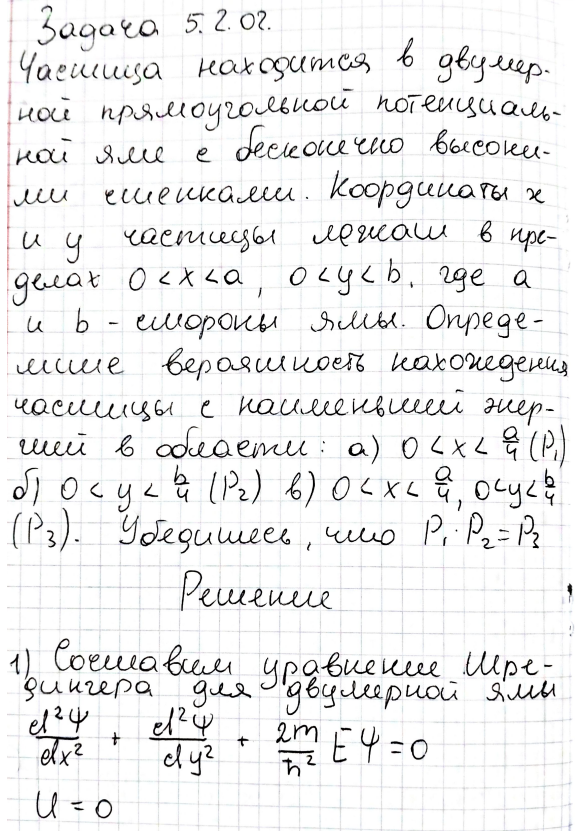 Задача 5.2.02.
Частица находится в двумер-
ной прямоугольной потенциаль-
ной яме с бесконечно высоки-
ми стенками. Координаты x
и y частицы лежат в пре-
делах 0 < x < a, 0 < y < b, где a
и b - стороны ямы. Опреде-
лите вероятность нахождения
частицы с наименьшей энер-
гией в области: а) 0 < x < a/4 (P₁)
б) 0 < y < b/4 (P₂) в) 0 < x < a/4, 0 < y < b/4
(P₃). Убедитесь, что P₁·P₂=P₃
Решение
1) Составим уравнение Шре-
дингера для двумерной ямы
d²Ψ/dx² + d²Ψ/dy² + 2m/ħ² EΨ = 0
U = 0